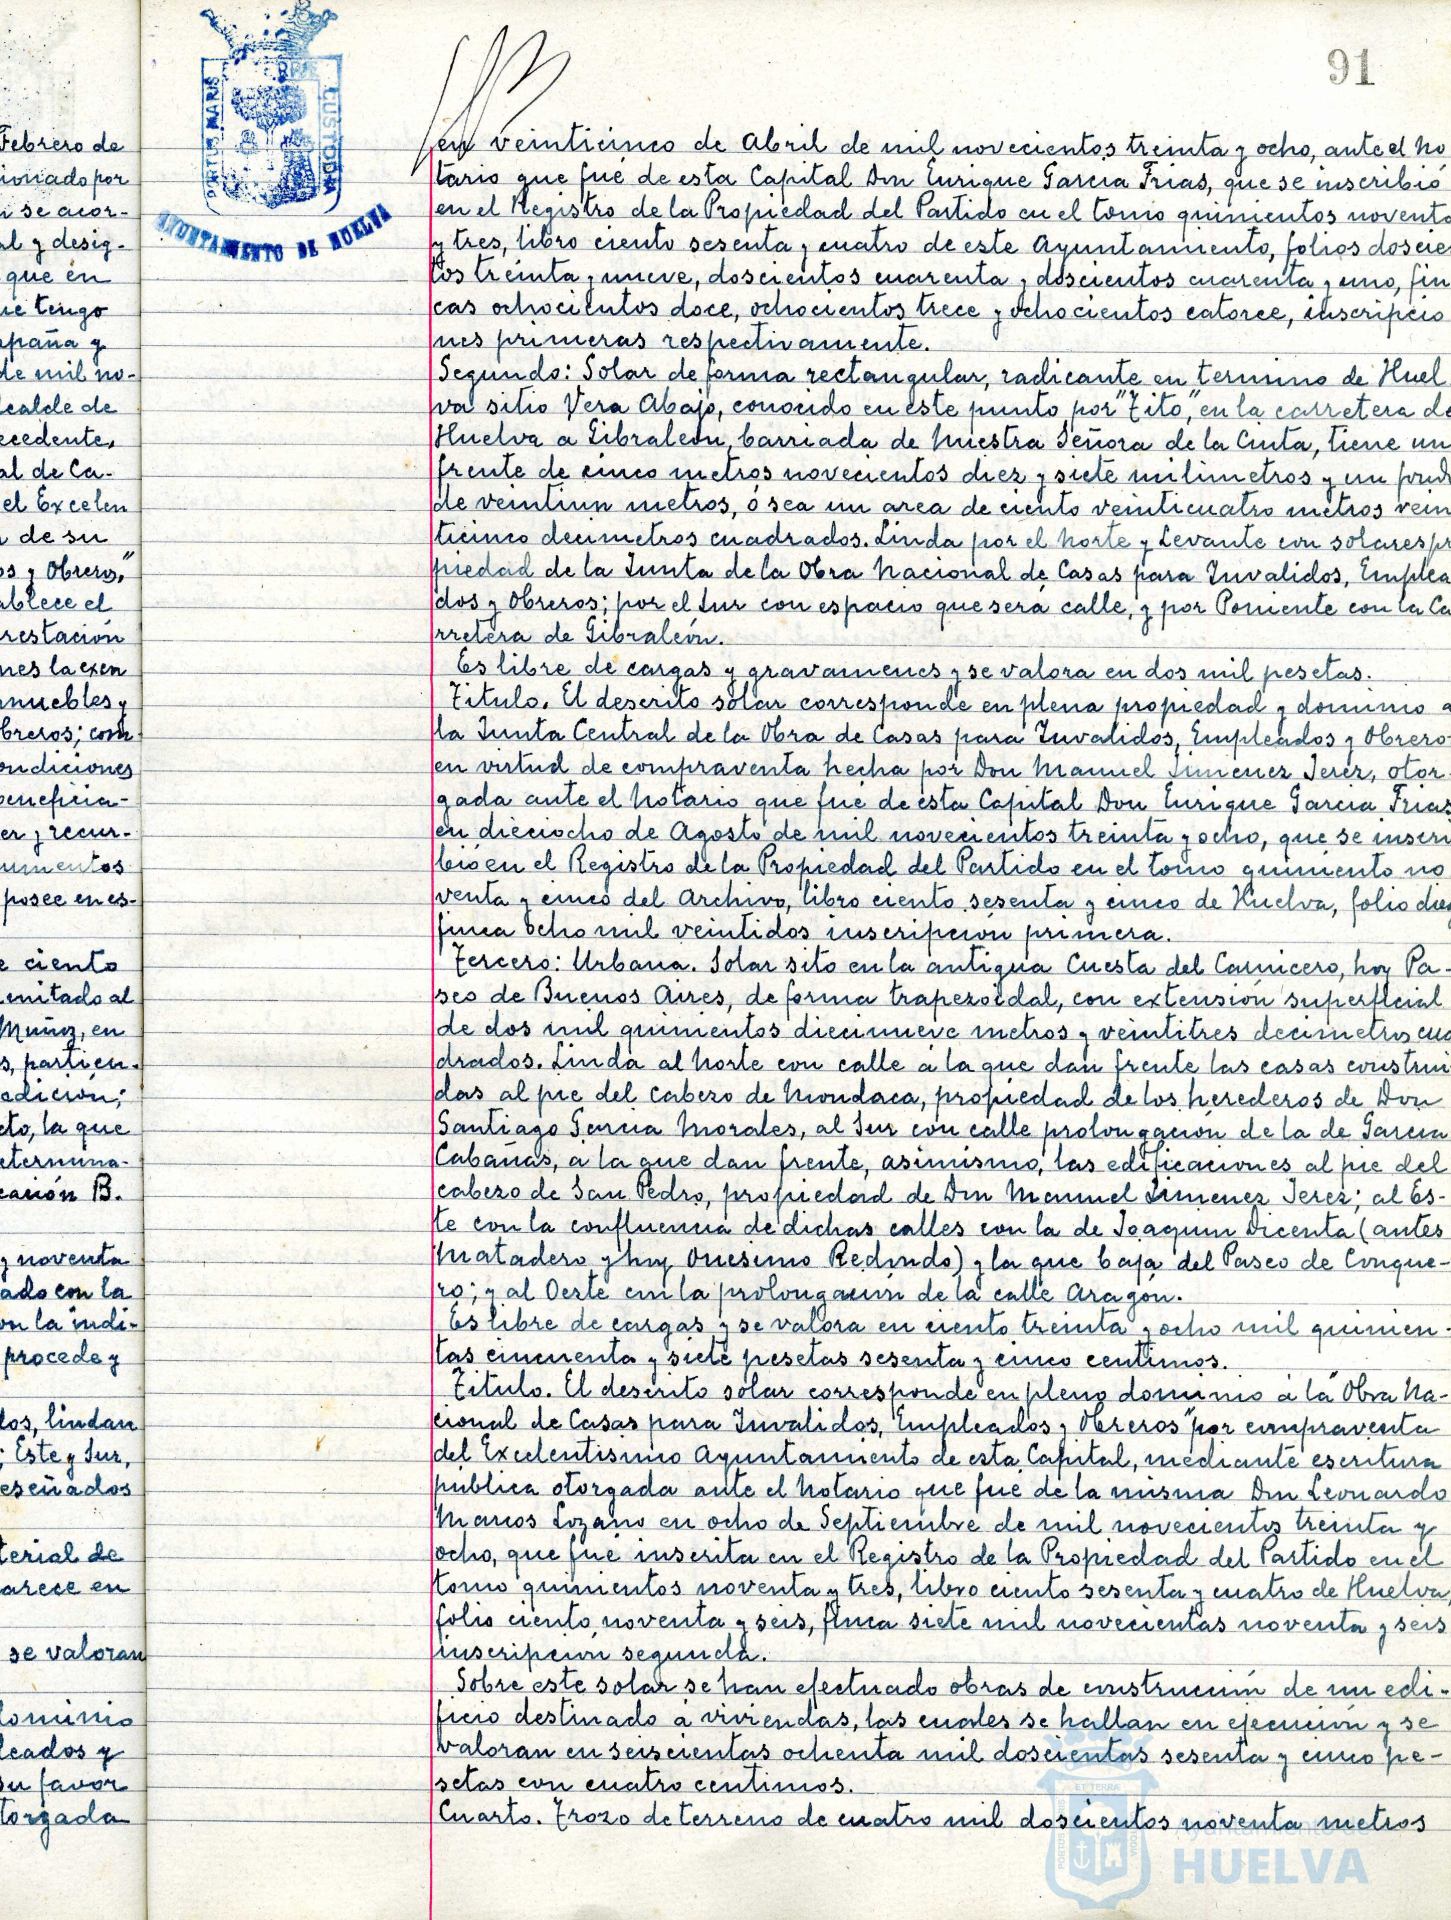 91
PORTUS MARIS
CUSTODIA
AYUNTAMIENTO DE HUELVA
Febrero de
ionado por
se acor-
al y desig-
que en
ue tengo
spaña y
de mil no-
lcalde de
ecedente,
al de Ca-
el Excelen
de su
os y Obreros,"
ablece el
restación
nes la exen
nmuebles y
breros; com
ondiciones
beneficia-
er y recur-
umentos
posee en es-
e ciento
Muñoz, en
s, partien-
edición;
cto, la que
etermina-
cación B.
y noventa
ado con la
on la indi-
procede y
los, lindan
; Este y Sur,
eseñados
terial de
arece en
se valoran
dominio
leados y
su favor
torgada
en veinticinco de Abril de mil novecientos treinta y ocho, ante el No
tario que fué de esta Capital Don Enrique Garcia Frias, que se inscribió
en el Registro de la Propiedad del Partido en el tomo quinientos noventa
y tres, libro ciento sesenta y cuatro de este Ayuntamiento, folios doscien
tos treinta y nueve, doscientos cuarenta y doscientos cuarenta y uno, fin
cas ochocientos doce, ochocientos trece y ochocientos catorce, inscripcio
nes primeras respectivamente.
Segundo: Solar de forma rectangular, radicante en termino de Huel
va sitio Vera Abajo, conocido en este punto por "Tito", en la carretera de
Huelva a Gibraleón, barriada de Nuestra Señora de la Cinta, tiene un
frente de cinco metros novecientos diez y siete milimetros y un fondo
de veintiun metros, ó sea un area de ciento veinticuatro metros vein
ticinco decimetros cuadrados. Linda por el Norte y Levante con solares pr
piedad de la Junta de la Obra Nacional de Casas para Invalidos, Emplea
dos y Obreros; por el Sur con espacio que será calle, y por Poniente con la Ca
rretera de Gibraleón.
Es libre de cargas y gravamenes y se valora en dos mil pesetas.
Titulo. El descrito solar corresponde en plena propiedad y dominio a
la Junta Central de la Obra de Casas para Invalidos, Empleados y Obreros
en virtud de compraventa hecha por Don Manuel Jimenez Jerez, otor
gada ante el Notario que fué de esta Capital Don Enrique Garcia Frias
en dieciocho de Agosto de mil novecientos treinta y ocho, que se inscri
bió en el Registro de la Propiedad del Partido en el tomo quiniento no
venta y cinco del Archivo, libro ciento sesenta y cinco de Huelva, folio diez
finca ocho mil veintidos inscripción primera.
Tercero: Urbana. Solar sito en la antigua Cuesta del Carnicero, hoy Pa-
seo de Buenos Aires, de forma trapezoidal, con extensión superficial
de dos mil quinientos diecinueve metros y veintitres decimetros cua
drados. Linda al Norte con calle a la que dan frente las casas construi
das al pie del cabezo de Mondaca, propiedad de los herederos de Don
Santiago Garcia Morales, al Sur con calle prolongación de la de Garcia
Cabañas, a la que dan frente, asimismo, las edificaciones al pie del
cabezo de San Pedro, propiedad de Don Manuel Jimenez Jerez; al Es-
te con la confluencia de dichas calles con la de Joaquin Dicenta (antes
Matadero y hoy Onesimo Redondo) y la que baja del Paseo de Conque-
ro; y al Oeste con la prolongación de la calle Aragón.
Es libre de cargas y se valora en ciento treinta y ocho mil quinien-
tas cincuenta y siete pesetas sesenta y cinco centimos.
Titulo. El descrito solar corresponde en pleno dominio a la "Obra Na-
cional de Casas para Invalidos, Empleados y Obreros" por compraventa
del Excelentisimo Ayuntamiento de esta Capital, mediante escritura
publica otorgada ante el Notario que fue de la misma Don Leonardo
Marcos Lozano en ocho de Septiembre de mil novecientos treinta y
ocho, que fué inscrita en el Registro de la Propiedad del Partido en el
tomo quinientos noventa y tres, libro ciento sesenta y cuatro de Huelva,
folio ciento noventa y seis, finca siete mil novecientas noventa y seis
inscripción segunda.
Sobre este solar se han efectuado obras de construcción de un edi-
ficio destinado a viviendas, las cuales se hallan en ejecución y se
valoran en seiscientas ochenta mil doscientas sesenta y cinco pe-
setas con cuatro centimos.
Cuarto. Trozo de terreno de cuatro mil doscientos noventa metros
Ayuntamiento de
HUELVA